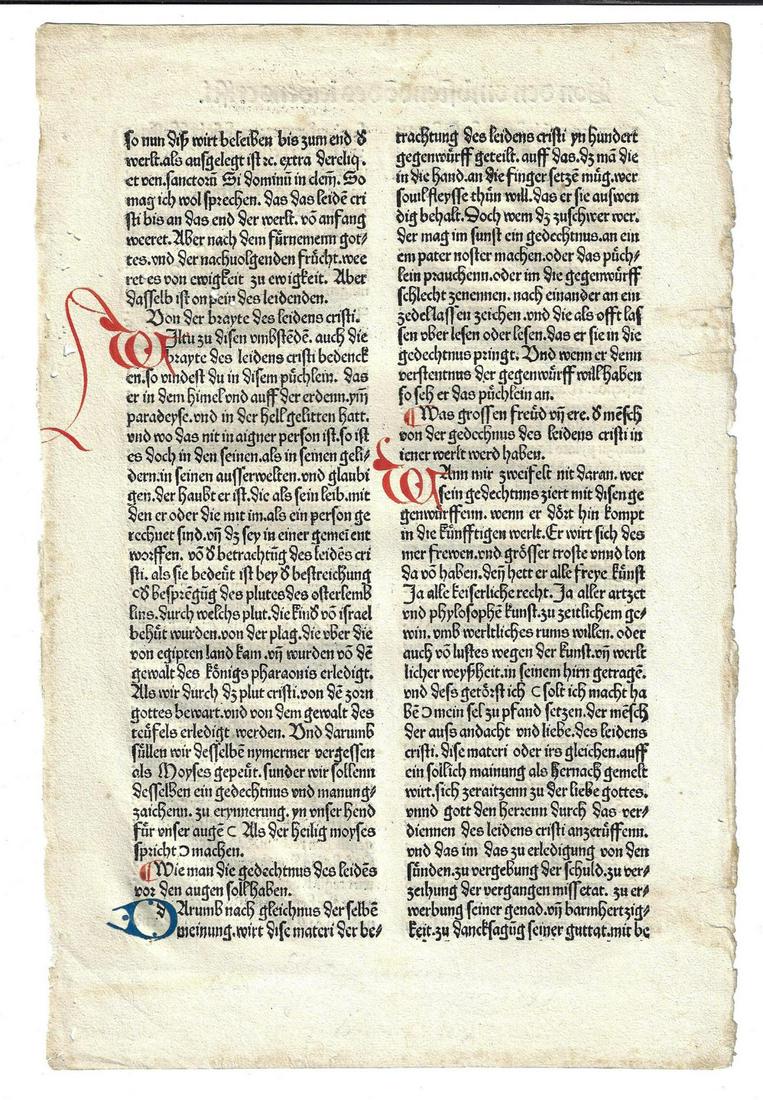 so nun diß wirt beleiben bis zum end d̾
werlt.als ausgelegt ist ꝛc. extra dereliq.
et ven.sanctorū Si dominū in dem̄. So
mag ich wol sprechen. das das leidē cri
sti bis an das end der werlt. vō anfang
weeret. Aber nach dem fürnemenn got⸗
tes.vnd der nachuolgenden frücht.wee
ret es von ewigkeit zu ewigkeit. Aber
dasselb ist on pein des leidenden.
Von der brayte des leidens cristi.
WIltu zu disen vmbstēdē. auch die
brayte des leidens cristi bedenck
en.so vindest du in disem püchlein. das
er in dem himel vnd auff der erdenn.yn̄
paradeyse.vnd in der hell gelitten hatt.
vnd wo das nit in aigner person ist.so ist
es doch in den seinen.als in seinen geli⸗
dern.in seinen ausserwelten.vnd glaubi
gen.der haubt er ist.die als sein leib.mit
den er oder die mit im.als ein person ge
rechnet sind.vn̄ dz sey in einer gemei ent
worffen. vō d̾ betrachtūg des leidēs cri
sti. als sie bedeüt ist bey d̾ bestreichung
od̾ besprēgūg des plutes des osterlemb
lins.durch welchs plut.die kind̾ vō israel
behüt wurden.von der plag.die vber die
von egipten land kam.vn̄ wurden vō dē
gewalt des königs pharaonis erledigt.
Als wir durch dz plut cristi.von dē zorn
gottes bewart.vnd von dem gewalt des
teüfels erledigt werden. Vnd darumb
süllen wir desselbē nymermer vergessen
als Moyses gepeüt. sunder wir sollenn
desselben ein gedechtnus vnd manung⸗
zaichenn. zu erynnerung. yn vnser hend
für vnser augē ⊂ Als der heilig moyses
spricht ⊃ machen.
¶ Wie man die gedechtnus des leidēs
vor den augen soll haben.
DArumb nach gleichnus der selbē
meinung.wirt dise materi der be⸗
trachtung des leidens cristi yn hundert
gegenwürff geteilt. auff das.dz mā die
in die hand.an die finger setzē müg.wer
souil fleysse thūn will.das er sie auswen
dig behalt. Doch wem dz zuschwer wer.
der mag im sunst ein gedechtnus.an ein
em pater noster machen.oder das püch⸗
lein prauchenn.oder im die gegenwürff
schlecht zenennen. nach einander an ein
zedel lassen zeichen.vnd die als offt las
sen vber lesen oder lesen.das er sie in die
gedechtnus pringt. Vnd wenn er denn
verstentnus der gegenwürff will haben
so seh er das püchlein an.
¶ Was grossen freüd vn̄ ere. d̾ mēsch
von der gedechnus des leidens cristi in
iener werlt werd haben.
WAnn mir zweifelt nit daran. wer
sein gedechtnus ziert mit disen ge
genwürffenn. wenn er dört hin kompt
in die künfftigen werlt. Er wirt sich des
mer frewen.vnd grösser troste vnnd lon
da vō haben.den̄ hett er alle freye künst
Ja alle keiserliche recht. Ja aller artzet
vnd phylosophē kunst.zu zeitlichem ge⸗
win. vmb werltliches rums willen. oder
auch vō lustes wegen der kunst.vn̄ werlt
licher weyßheit.in seinem hirn getragē.
vnd dess getörst ich ⊂ solt ich macht ha
bē ⊃ mein sel zu pfand setzen.der mēsch
der auss andacht vnd liebe.des leidens
cristi. dise materi oder irs gleichen.auff
ein söllich mainung als hernach gemelt
wirt.sich zeraitzenn zu der liebe gottes.
vnnd gott den herrenn durch das ver⸗
diennen des leidens cristi anzerüffenn.
vnd das im das zu erledigung von den
sünden.zu vergebung der schuld.zu ver⸗
zeihung der vergangen missetat. zu er⸗
werbung seiner genad.vn̄ barmhertzig⸗
keit.zu dancksagūg seiner guttat.mit be